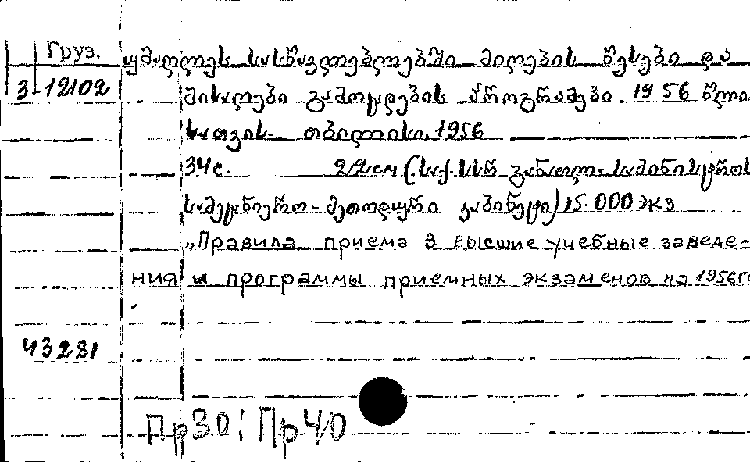 Груз.
3-12102
უმაღლეს სასწავლებლებში მიღების წესები და
მისაღები გამოცდების პროგრამები. 1956 წლი
სათვის. თბილისი, 1956
34с. 22სმ (საქ. სსრ განათლ. სამინისტროს
სამეცნიერო-მეთოდური კაბინეტი) 15.000 экз
„Правила приема в высшие учебные заведе-
ния и программы приемных экзаменов на 1956г
43281
Пр30; Пр40